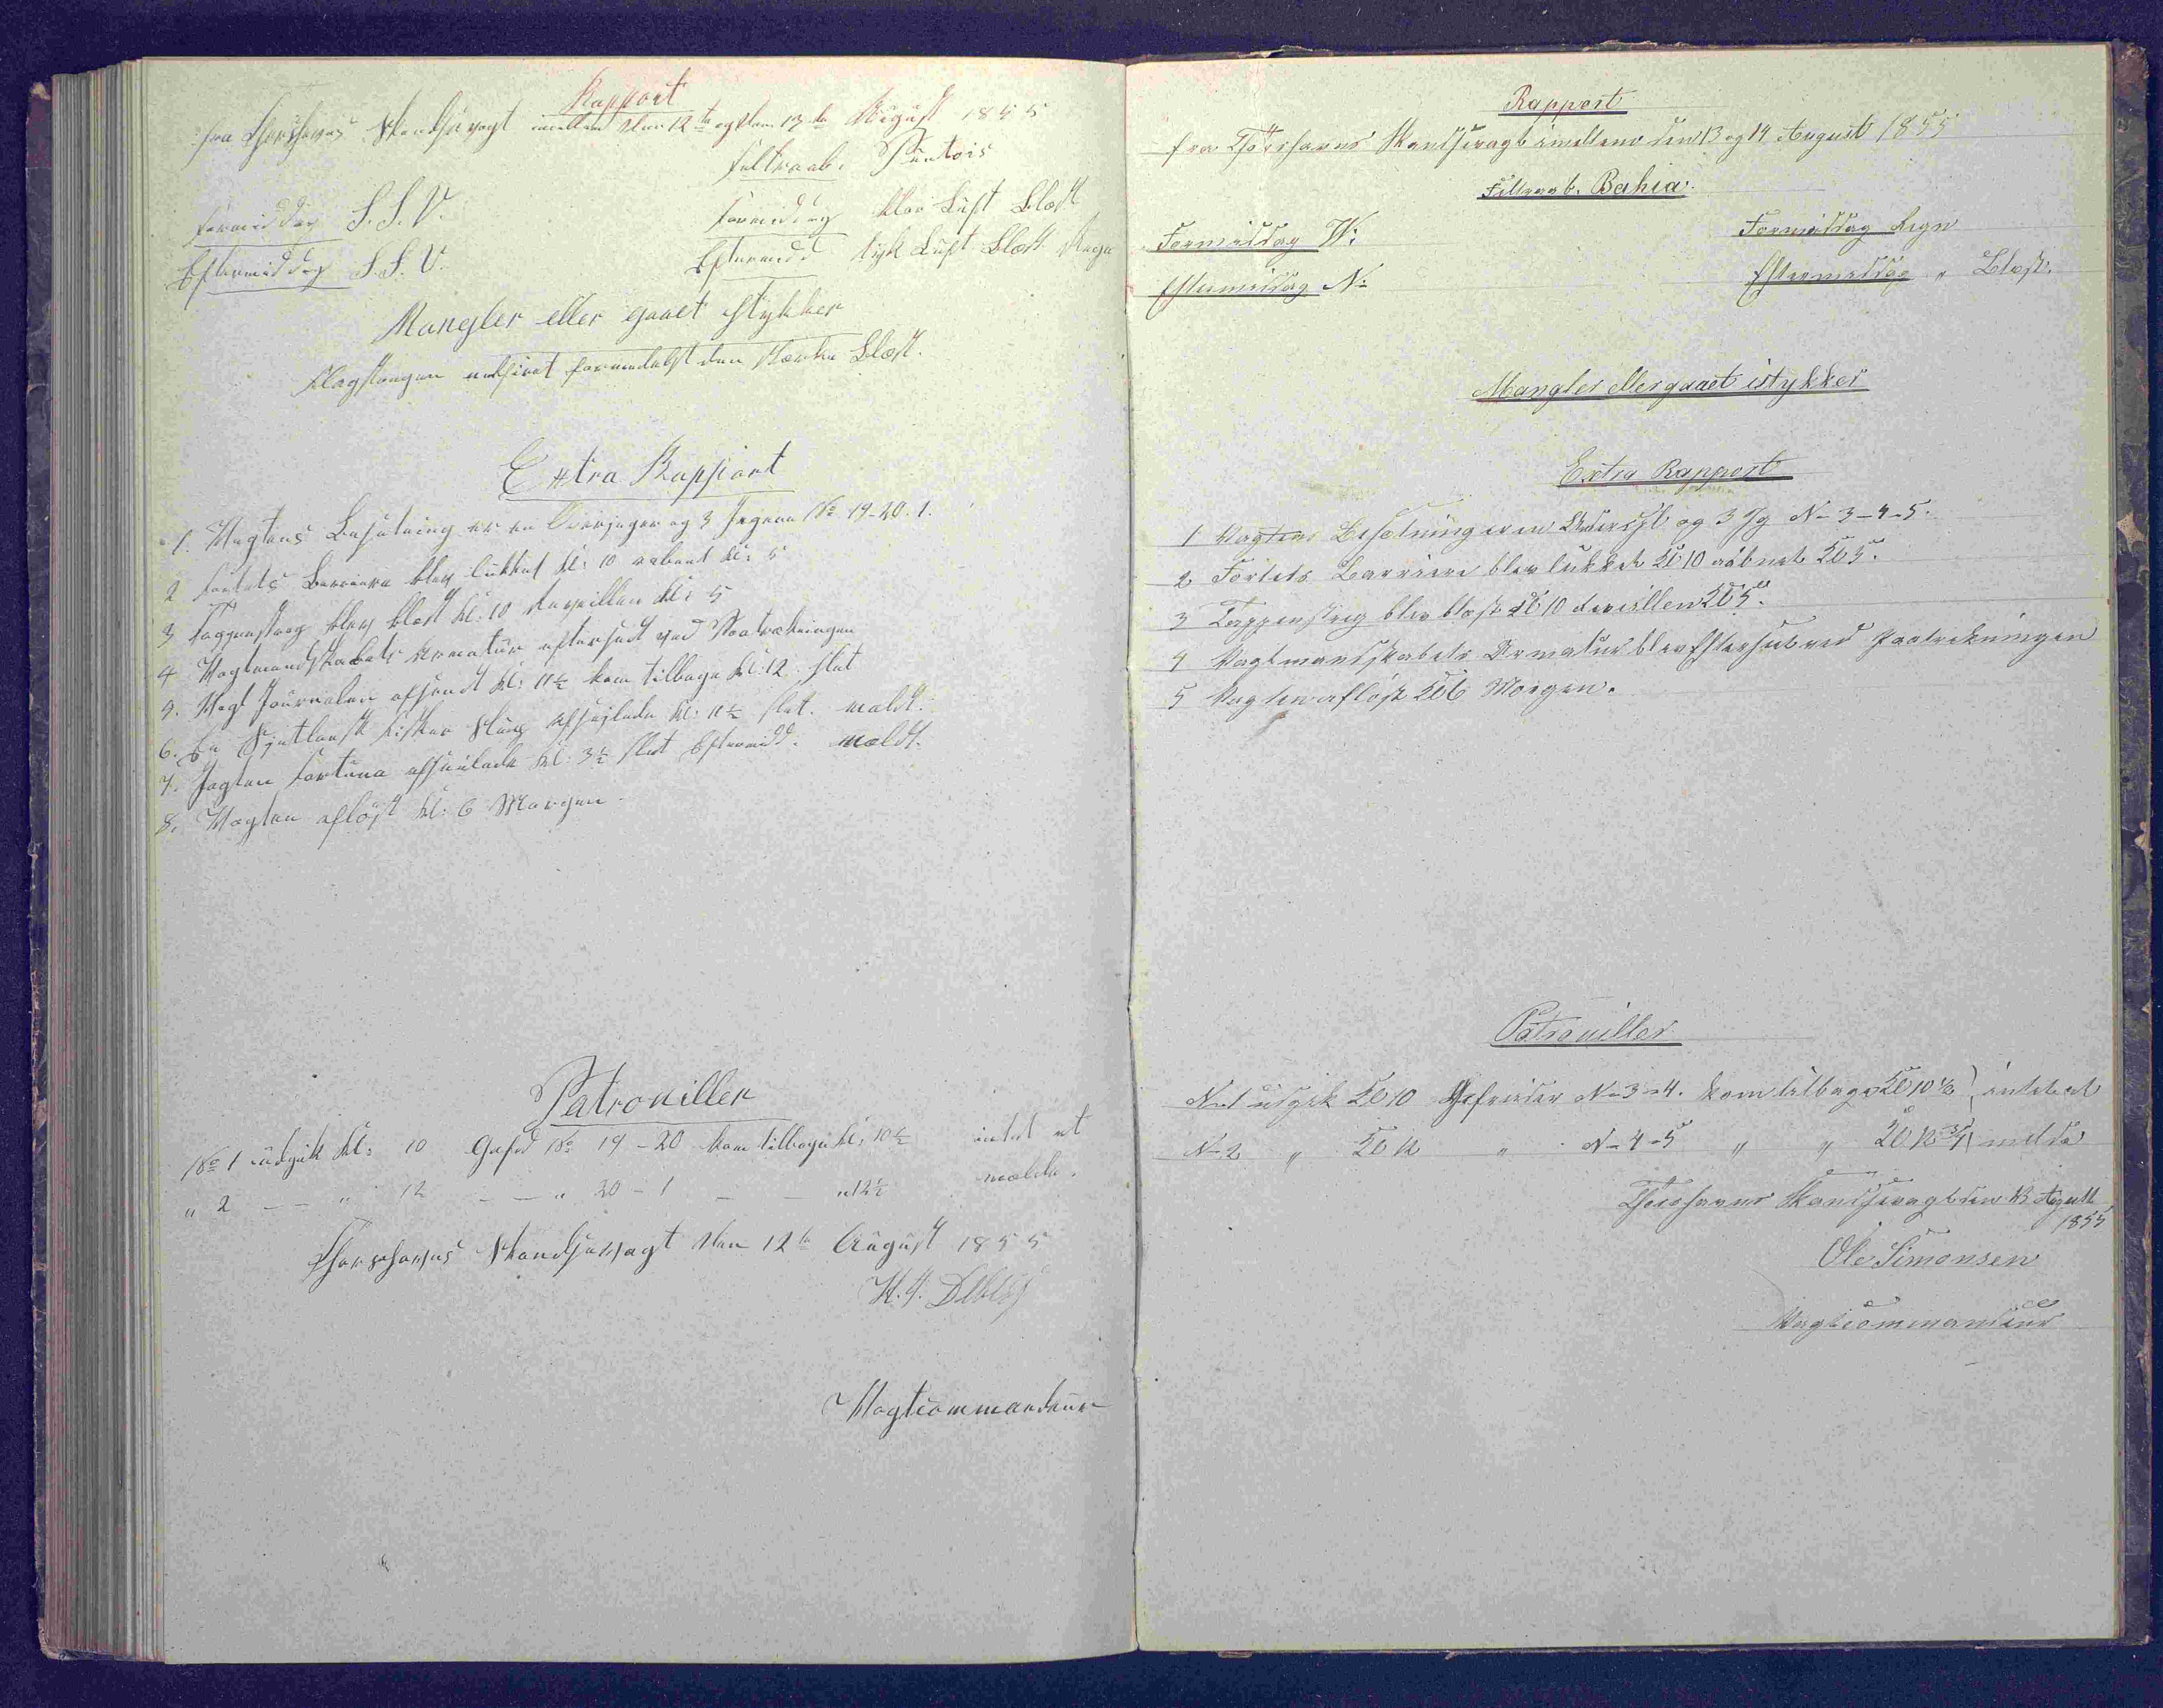 Rapport
fra Thorshavns Skandsevagt imellem den 12te og den 13de August 1855
Feltraab. Pontois
Formiddag S.S.V. Formiddag klar Luft Blæst
Eftermiddag S.S.V. Eftermidd tyk Luft Blæst Regn
Mangler eller gaaet istykker
Flagstangen nedfiret formedelst den stærke Blæst.
Extra Rapport
1. Vagtens Besætning er en Overjæger og 3 Jægere No 19-20.1.
2 Fortets Barriere blev lukket Kl: 10 aabent Kl: 5
3 Tappenstreg blev blæst Kl: 10 Reveillen Kl: 5
4 Vagtmandskabets Armatur efterseet ved Paatrædningen
5. Vagt Journalen afsendt Kl: 11½ kom tilbage Kl: 12 slet
6. En Hjetlandsk Fisker Slup afseilede Kl: 11½ slet. meldt.
7. Jagten Fortuna afseilede Kl: 3½ slet Eftermidd. meldt.
8. Vagten afløst Kl: 6 Morgen
Patrouiller
No 1 udgik Kl: 10 Gefrd No 19-20 kom tilbage Kl: 10½ intet at
" 2 — " 12 — — " 20-1 — — " 12½ melde.
Thorshavns Skandsevagt den 12te August 1855
H.J. Debess
Vagtcommandeur
Rapport
fra Thorshavns Skandsevagt imellem den 13 og 14 August 1855
Feltraab. Bahia.
Formiddag W: Formiddag Regn
Eftermiddag N: Eftermiddag " Blæst.
Mangler eller gaaet istykker
Extra Rapport
1 Vagtens Besætning er en Underofl og 3 Jg No 3-4-5.
2 Fortets Barriere blev lukket Kl 10 aabnet Kl 5.
3 Tappenstreg blev blæst Kl 10 Revillen Kl 5.
4 Vagtmandskabets Armatur blev Efterseet ved Paatrekningen
5 Vagten afløst Kl 6 Morgen.
Patrouiller
No 1 udgik Kl 10 Gefreider No 3-4. kom tilbage Kl 10½ intet at
No 2 " Kl 12 " No 4-5 " " Kl 12¾ melde
Thorshavns Skandsevagt den 13 Agust
1855
Ole Simonsen
Vagtcommandeur